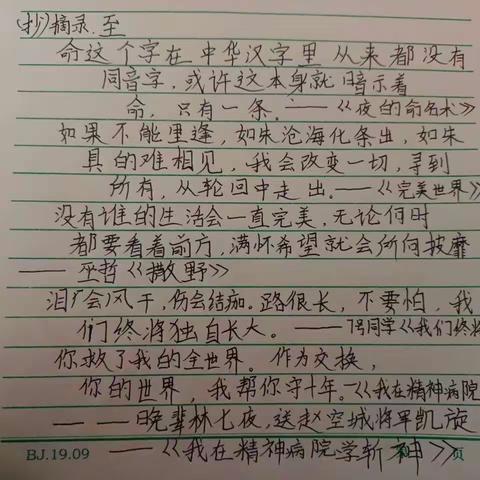 (抄)摘录.至
命这个字在中华汉字里从来都没有
同音字,或许这本身就暗示着
命,只有一条.——《夜的命名术》
如果不能里逢,如朱沧海化条出,如朱
具的难相见,我会改变一切,寻到
所有,从轮回中走出.——《完美世界》
没有谁的生活会一直完美,无论何时
都要看着前方,满怀希望就会所向披靡
——巫哲《撒野》
泪会风干,伤会结痂.路很长,不要怕,我
们终将独自长大。——78同学《我们终将
你救了我的全世界。作为交换,
你的世界,我帮你守十年.—《我在精神病院
———晚辈林七夜,送赵空城将军凯旋
——《我在精神病院学斩神》
BJ.19.09 页